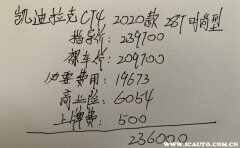 凯迪拉克CT4 2020款 28T 时尚型
指导价: 239700
裸车价: 209700
必要费用: 19673
商业险: 6054
上牌费: 500
236000
www.icauto.com.cn